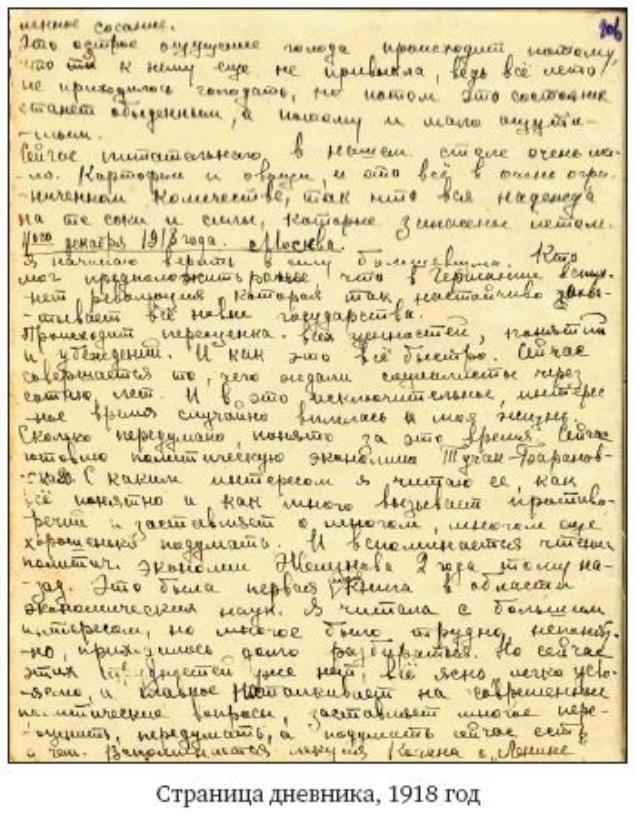 ненное сосание.
206
Это острое ощущение голода происходит потому,
что ты к нему еще не привыкла, ведь всё лето
не приходилось голодать, но потом это состояние
станет обыденным, а потому и мало ощути-
-мым.
Сейчас питательного в нашем столе очень ма-
ло. Картофель и овощи, и это всё в очень огра-
-ниченном количестве, так что вся надежда
на те соки и силы, которые запасены летом.
декабря 1918 года. Москва.
Я начинаю верить в силу большевизма. Кто
мог предположить раньше что в Германии вспых-
-нет революция которая так настойчиво захва-
-тывает всё новые государства.
Происходит переоценка всех ценностей, понятий
и убеждений. И как это всё быстро. Сейчас
совершается то, чего ждали социалисты через
сотню лет. И в это исключительное, интерес
-ное время случайно вылилась и моя жизнь.
Сколько передумано, понято за это время. Сейчас
готовлю политическую экономию Туган-Баранов-
-ского. С каким интересом я читаю ее, как
всё понятно и как много вызывает противо-
-речий и заставляет о многом, многом еще
хорошенько подумать. И вспоминается чтение
политич. экономии Железнова 2 года тому на-
-зад. Это была первая книга в области
экономических наук. Я читала с большим
интересом, но многое было трудно, непонят-
-но, приходилось долго разбираться. Но сейчас
этих трудностей уже нет, всё ясно, легко усво-
-яемо, а главное наталкивает на современные
политические вопросы, заставляет многое пере-
-оценить, передумать, а подумать сейчас есть
о чем. Вспоминается лекция Когана о „Ленине"
Страница дневника, 1918 год